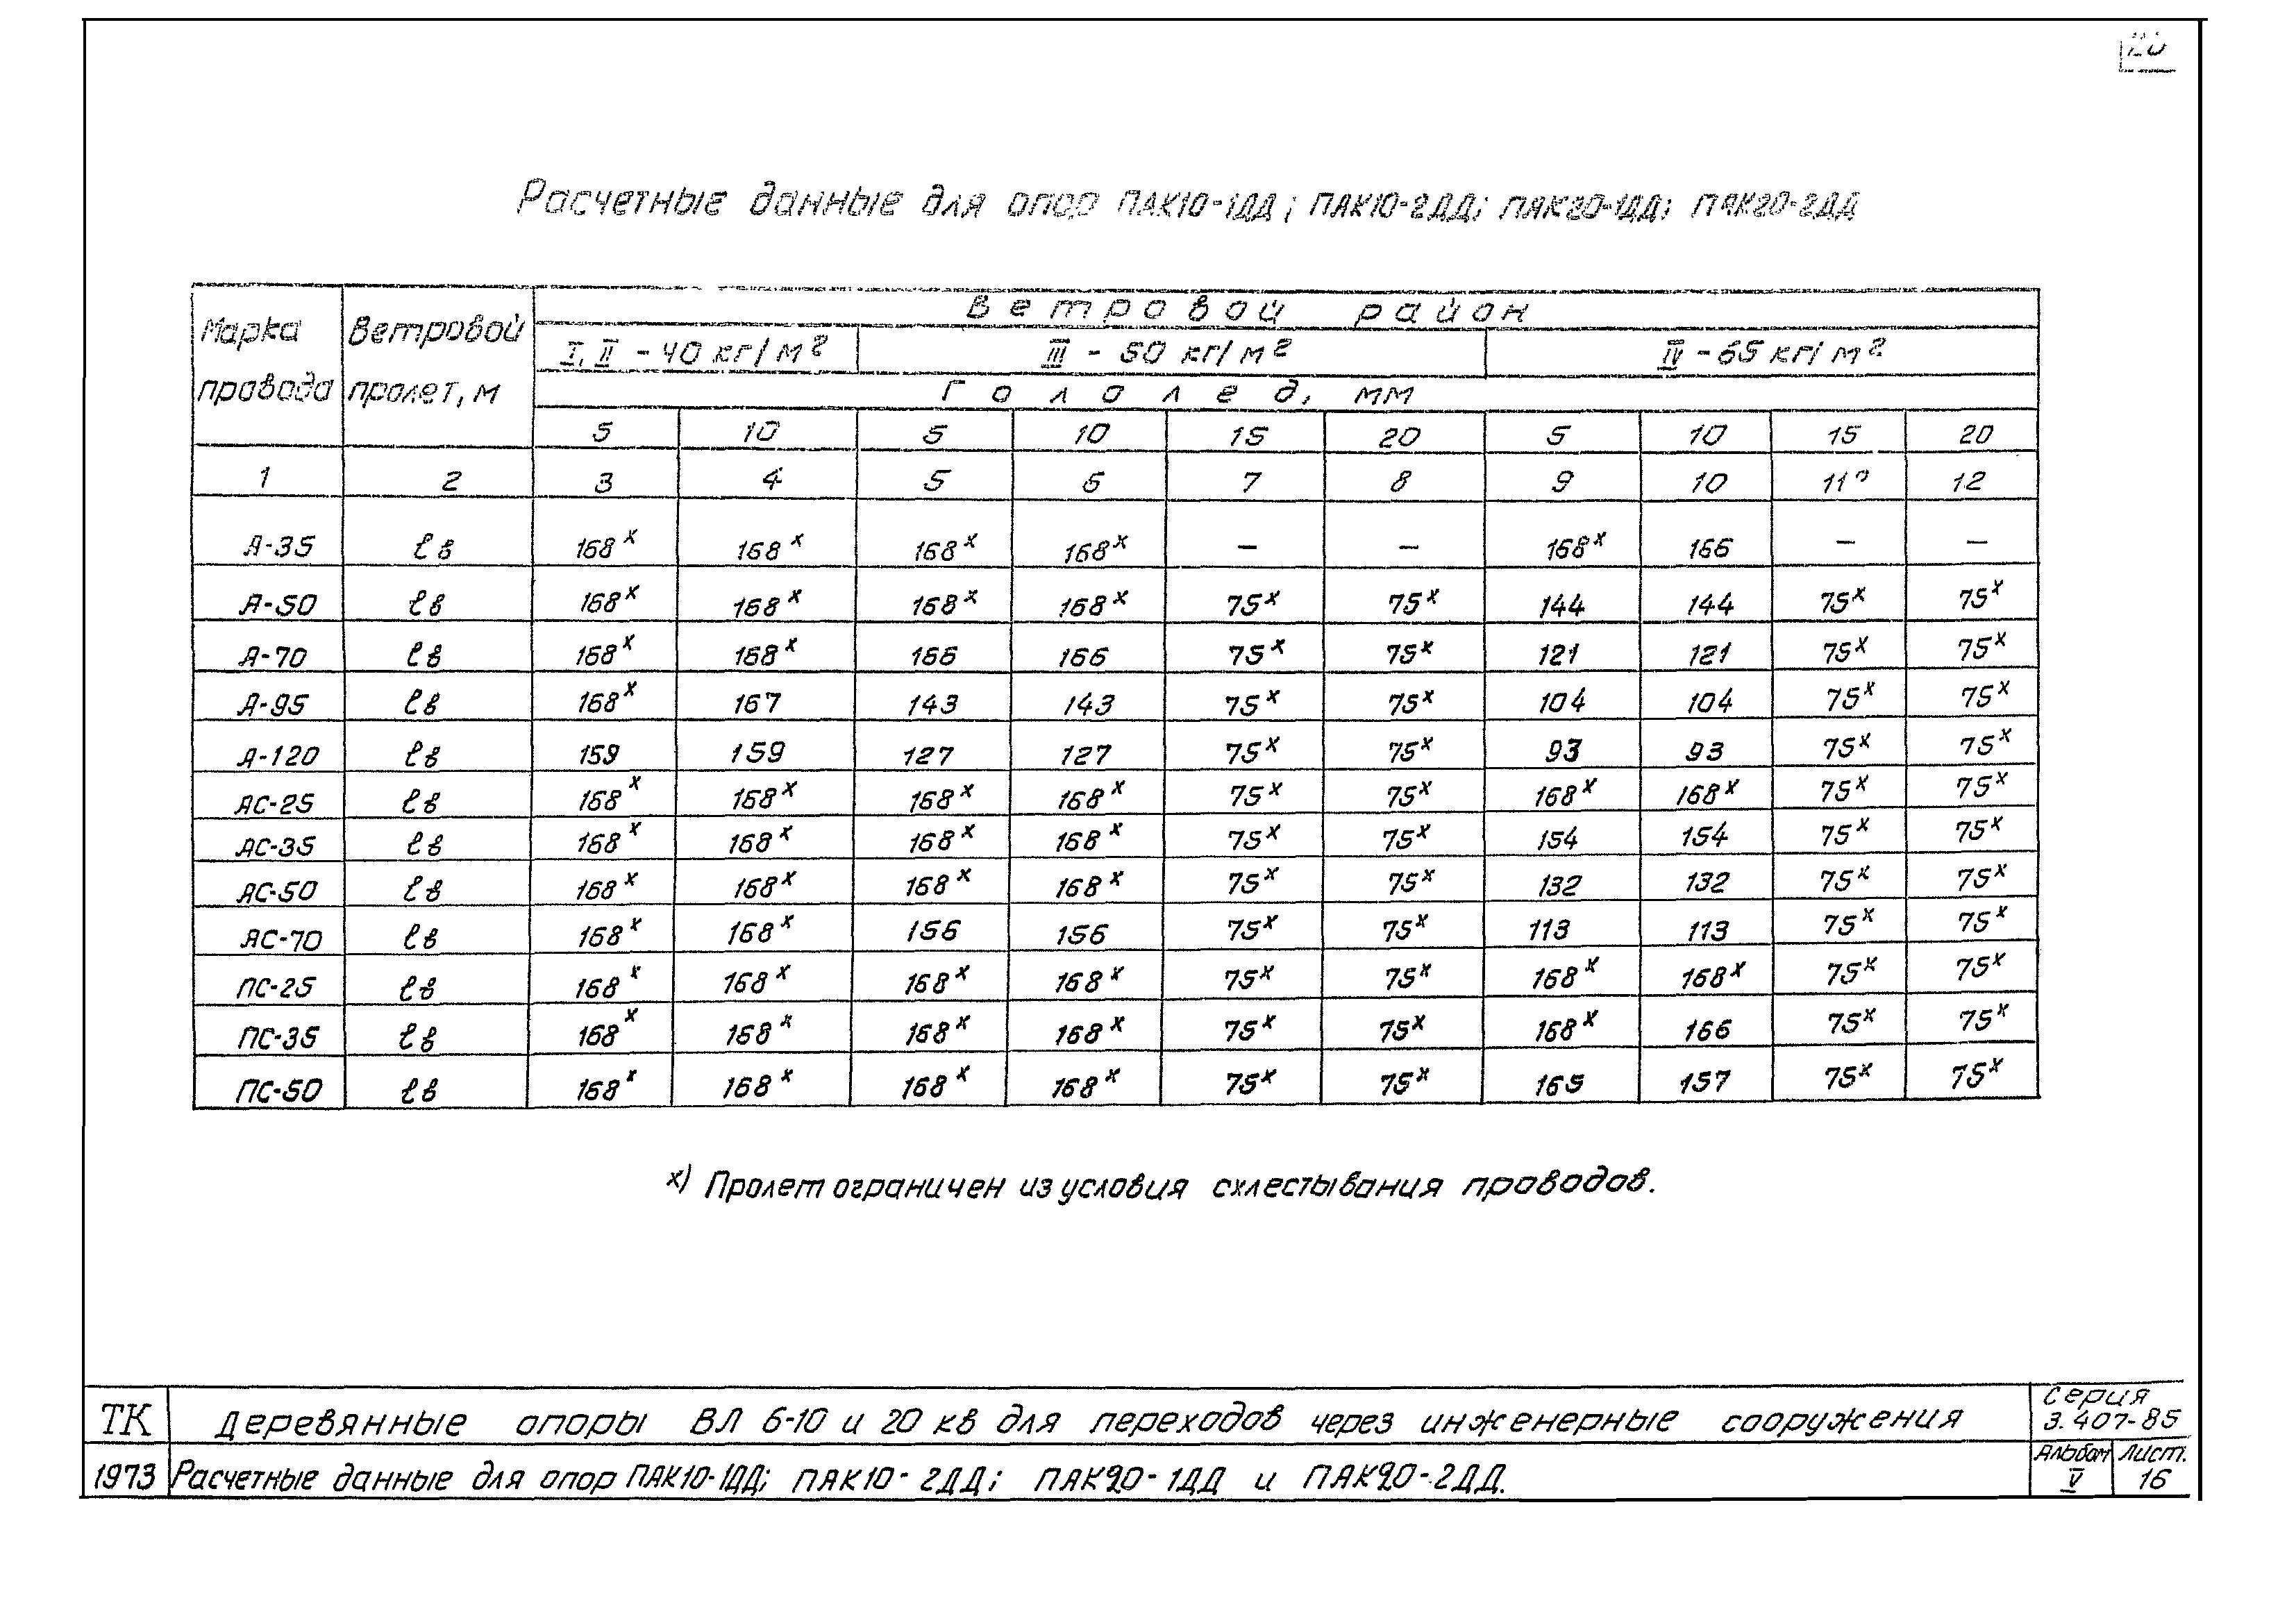 20
Расчетные данные для опор ПАК10-1ДД; ПАК10-2ДД; ПАК20-1ДД; ПАК20-2ДД
Марка провода Ветровой пролет, м Ветровой район
I, II - 40 кг/м² III - 50 кг/м² IV - 65 кг/м²
Гололед, мм
5 10 5 10 15 20 5 10 15 20
1 2 3 4 5 6 7 8 9 10 11 12
А-35 ℓв 168х 168х 168х 168х — — 168х 166 — —
А-50 ℓв 168х 168х 168х 168х 75х 75х 144 144 75х 75х
А-70 ℓв 168х 168х 166 166 75х 75х 121 121 75х 75х
А-95 ℓв 168х 167 143 143 75х 75х 104 104 75х 75х
А-120 ℓв 159 159 127 127 75х 75х 93 93 75х 75х
АС-25 ℓв 168х 168х 168х 168х 75х 75х 168х 168х 75х 75х
АС-35 ℓв 168х 168х 168х 168х 75х 75х 154 154 75х 75х
АС-50 ℓв 168х 168х 168х 168х 75х 75х 132 132 75х 75х
АС-70 ℓв 168х 168х 156 156 75х 75х 113 113 75х 75х
ПС-25 ℓв 168х 168х 168х 168х 75х 75х 168х 168х 75х 75х
ПС-35 ℓв 168х 168х 168х 168х 75х 75х 168х 166 75х 75х
ПС-50 ℓв 168х 168х 168х 168х 75х 75х 165 157 75х 75х
х) Пролет ограничен из условия схлестывания проводов.
ТК Деревянные опоры ВЛ 6-10 и 20 кв для переходов через инженерные сооружения Серия 3.407-85
1973 Расчетные данные для опор ПАК10-1ДД; ПАК10-2ДД; ПАК20-1ДД и ПАК20-2ДД. Альбом V Лист. 16